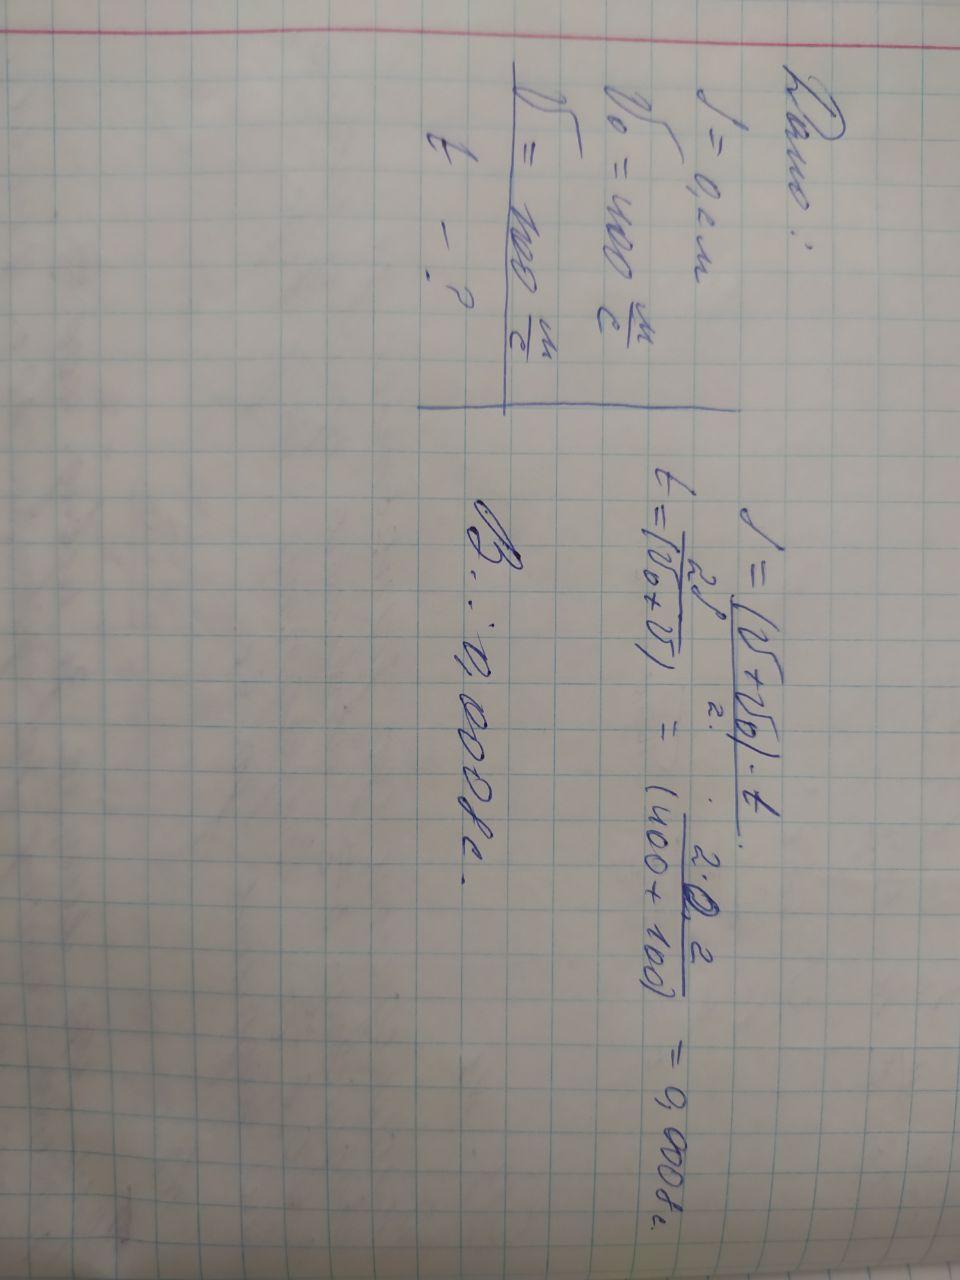 Дано:
S = 0,2 м
V₀ = 400 м/с
V = 100 м/с
t - ?
S = (V + V₀) · t / 2.
t = 2S / (V₀ + V) = 2 · 0,2 / (400 + 100) = 0,0008 с.
В.: 0,0008 с.